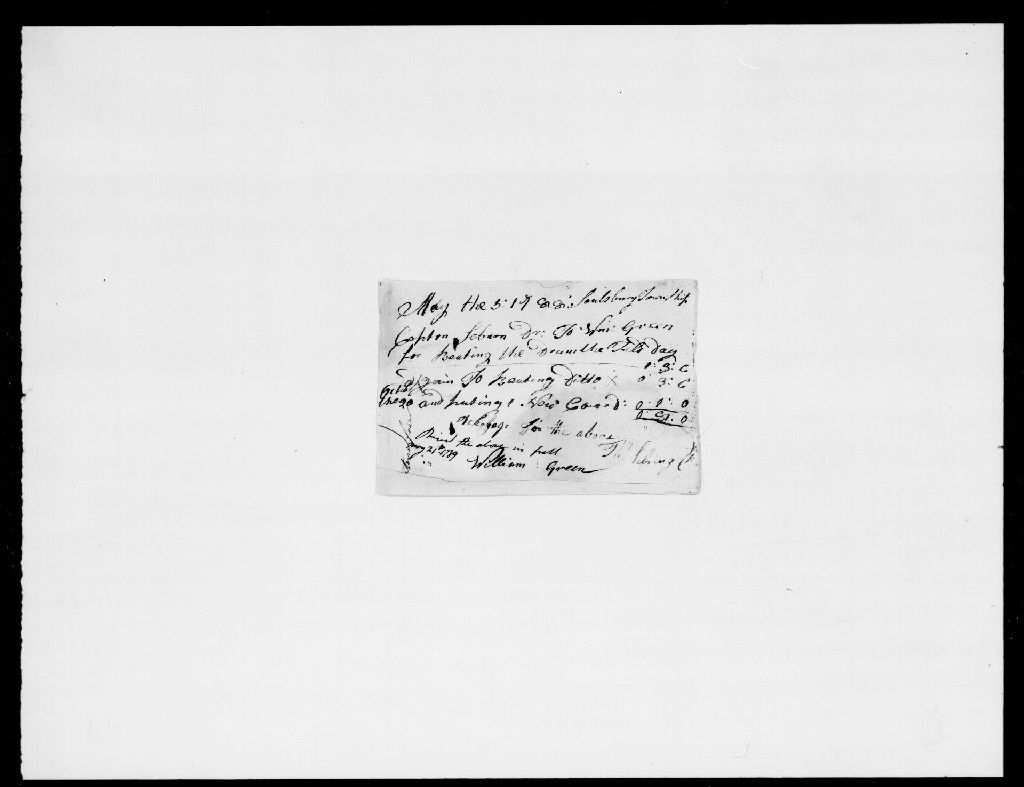 May the 5: 1788: Soulsbury Township
Capten Sebren Dr: To Wm: Green
for Beating the Drum the Feld Day
0: 3: 6
again To Beating Ditto 0 3: 6
and puting 1 New Coard: 0 2: 0
0. 9. 0
for the above
Recd the above in full
may 21th 1789
William: Green